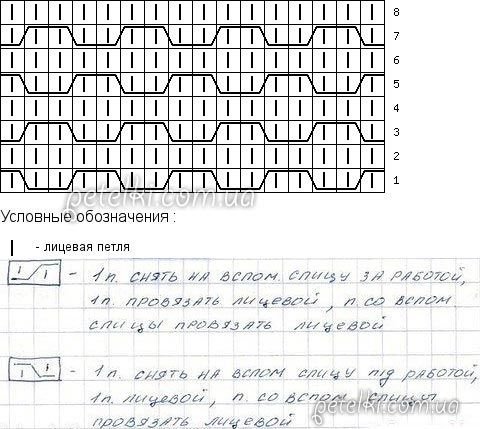 8
7
6
5
4
3
2
1
petelki.com.ua
Условные обозначения :
| - лицевая петля
- 1п. снять на вспом. спицу за работой,
1п. провязать лицевой, п. со вспом.
спицы провязать лицевой
- 1п. снять на вспом спицу під работой,
1п. лицевой, п. со вспом. спицы
провязать лицевой
petelki.com.ua